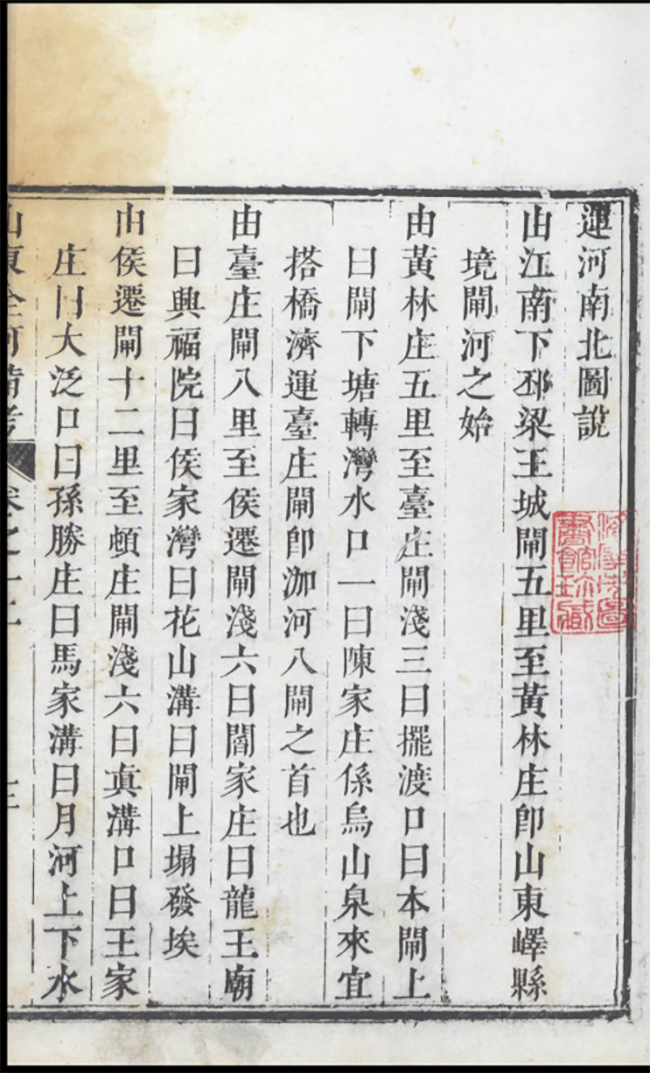 運河南北圖說
由江南下邳梁王城閘五里至黃林庄卽山東嶧縣
境閘河之始
由黃林庄五里至臺庄閘淺三曰擺渡口曰本閘上
曰閘下塘轉灣水口一曰陳家庄係烏山泉來宜
搭橋濟運臺庄閘卽泇河八閘之首也
由臺庄閘八里至侯遷閘淺六曰閻家庄曰龍王廟
曰興福院曰侯家灣曰花山溝曰閘上塌發埃
由侯遷閘十二里至頓庄閘淺六曰真溝口曰王家
庄曰大泛口曰孫勝庄曰馬家溝曰月河上下水
山東全河備考 卷之二